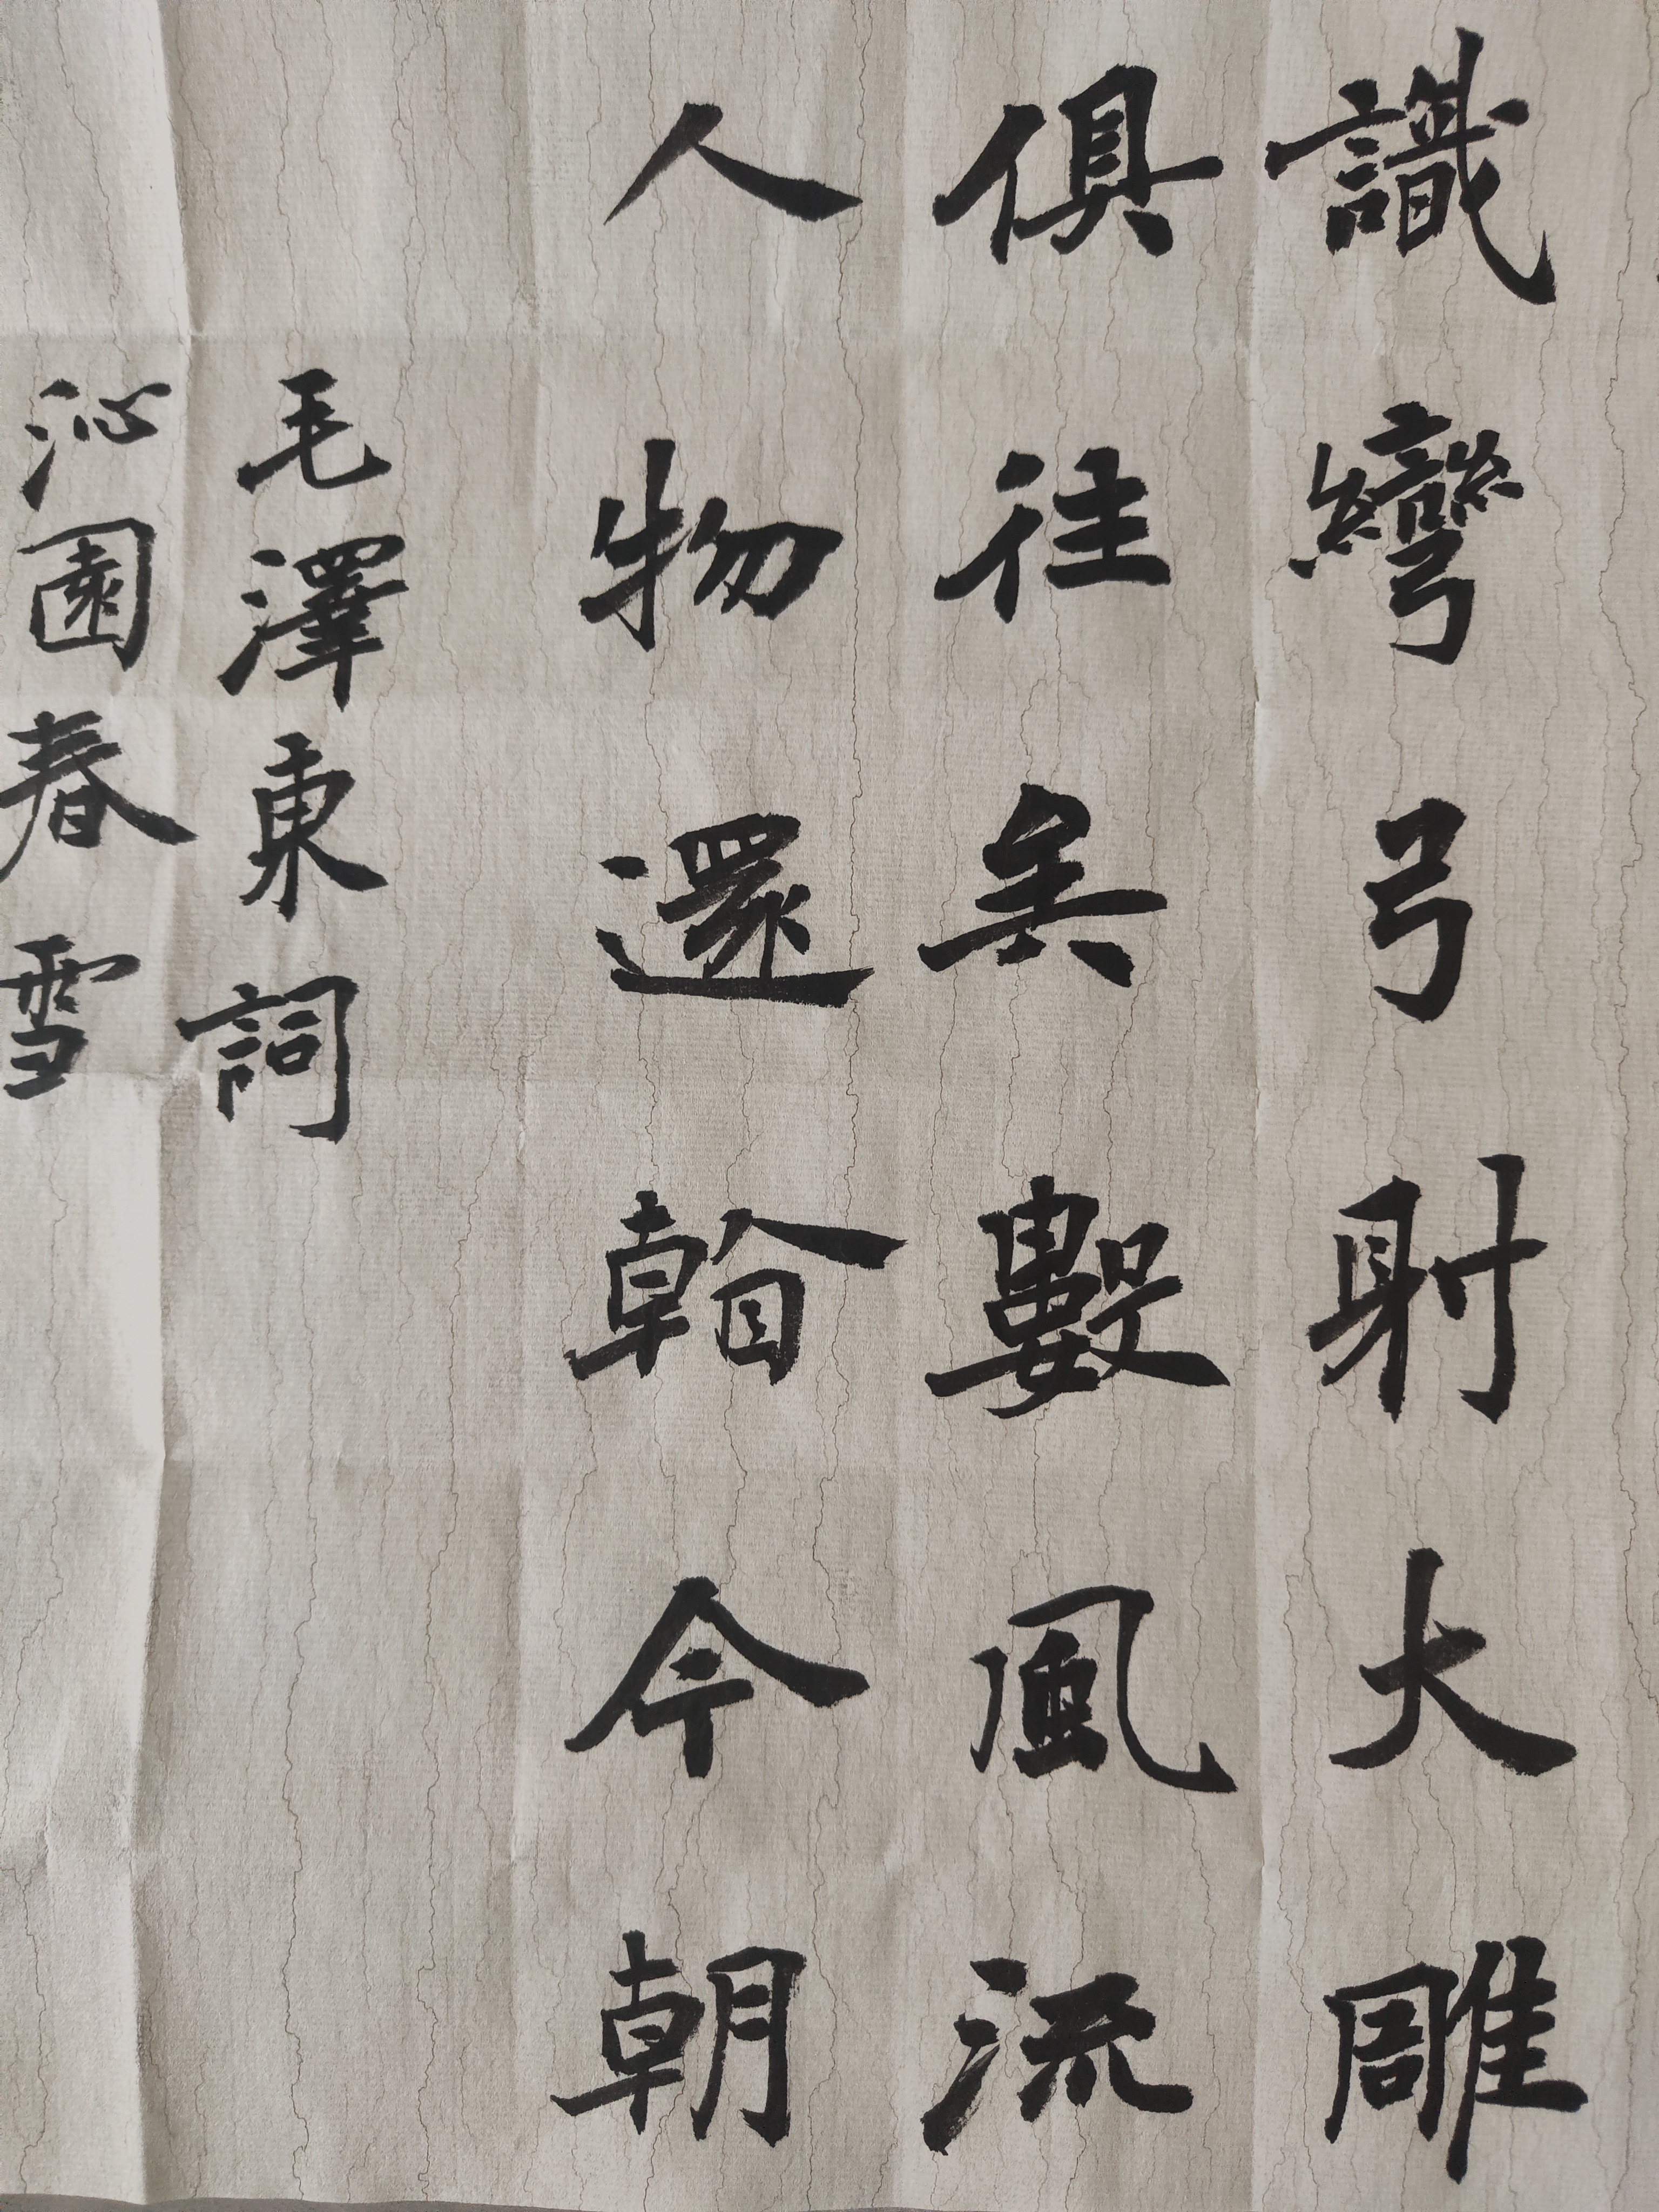 識彎弓射大雕
俱往矣數風流
人物還看今朝
毛澤東詞
沁園春雪